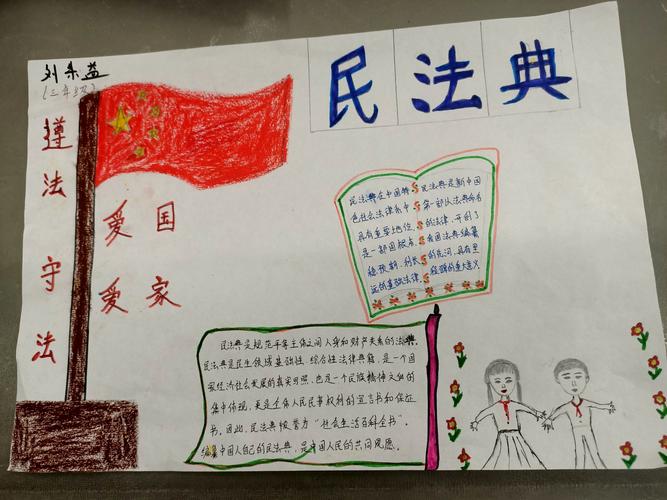 刘乐益
(三年级)
民法典
遵法守法
爱国
爱家
民法典在中国特
色社会法律系中
具有重要地位,
是一部固根本
稳预期、利长
远的基础法律。
民法典是新中国
第一部以法典命名
的法律,开创了
我国法典编纂
的先河,具有里
程碑的重大意义
民法典是规范平等主体之间人身和财产关系的法典,
民法典是民生领域基础性、综合性法律典籍,是一个国
家经济社会发展的真实写照,也是一个民族精神文化的
集中体现,更是全体人民民事权利的宣言书和保证
书。因此,民法典被誉为“社会生活百科全书”。
编纂中国人自己的民法典,是中国人民的共同夙愿。